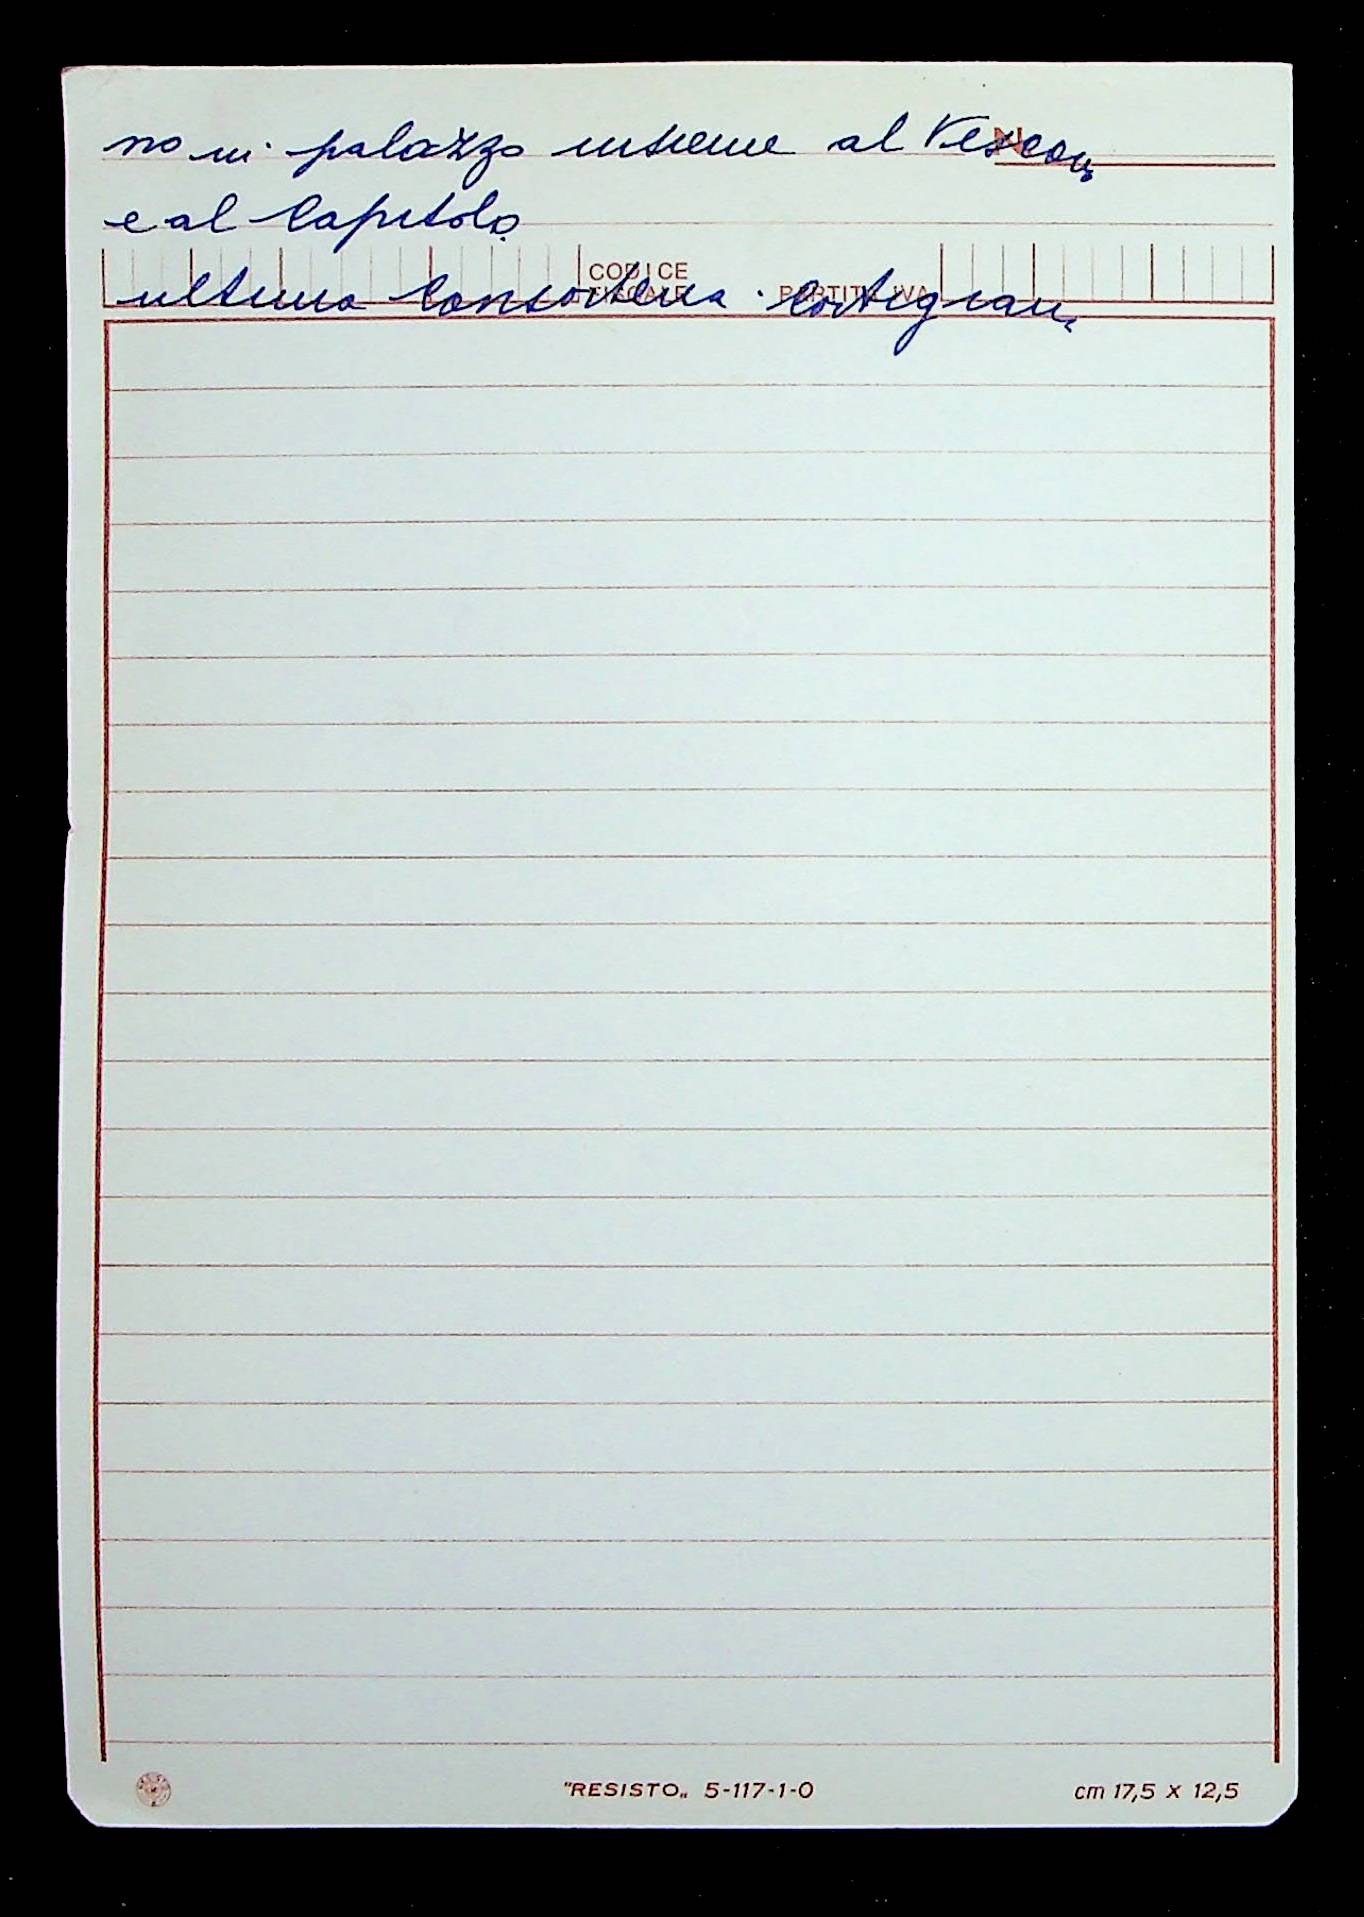 no in palazzo insieme al Vescovo
N.
e al Capitolo
CODICE
FISCALE
PARTITA IVA
ultima Consorteria. Cortigiani
"RESISTO„ 5-117-1-0
cm 17,5 x 12,5